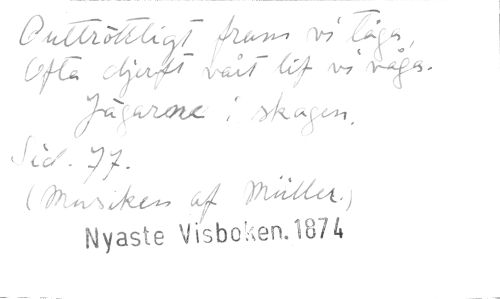 Outtröttligt fram vi tåga,
Ofta djerft vårt lif vi våga.
Jägarne i skogen.
Sid. 77.
(Musiken af Müller.)
Nyaste Visboken. 1874